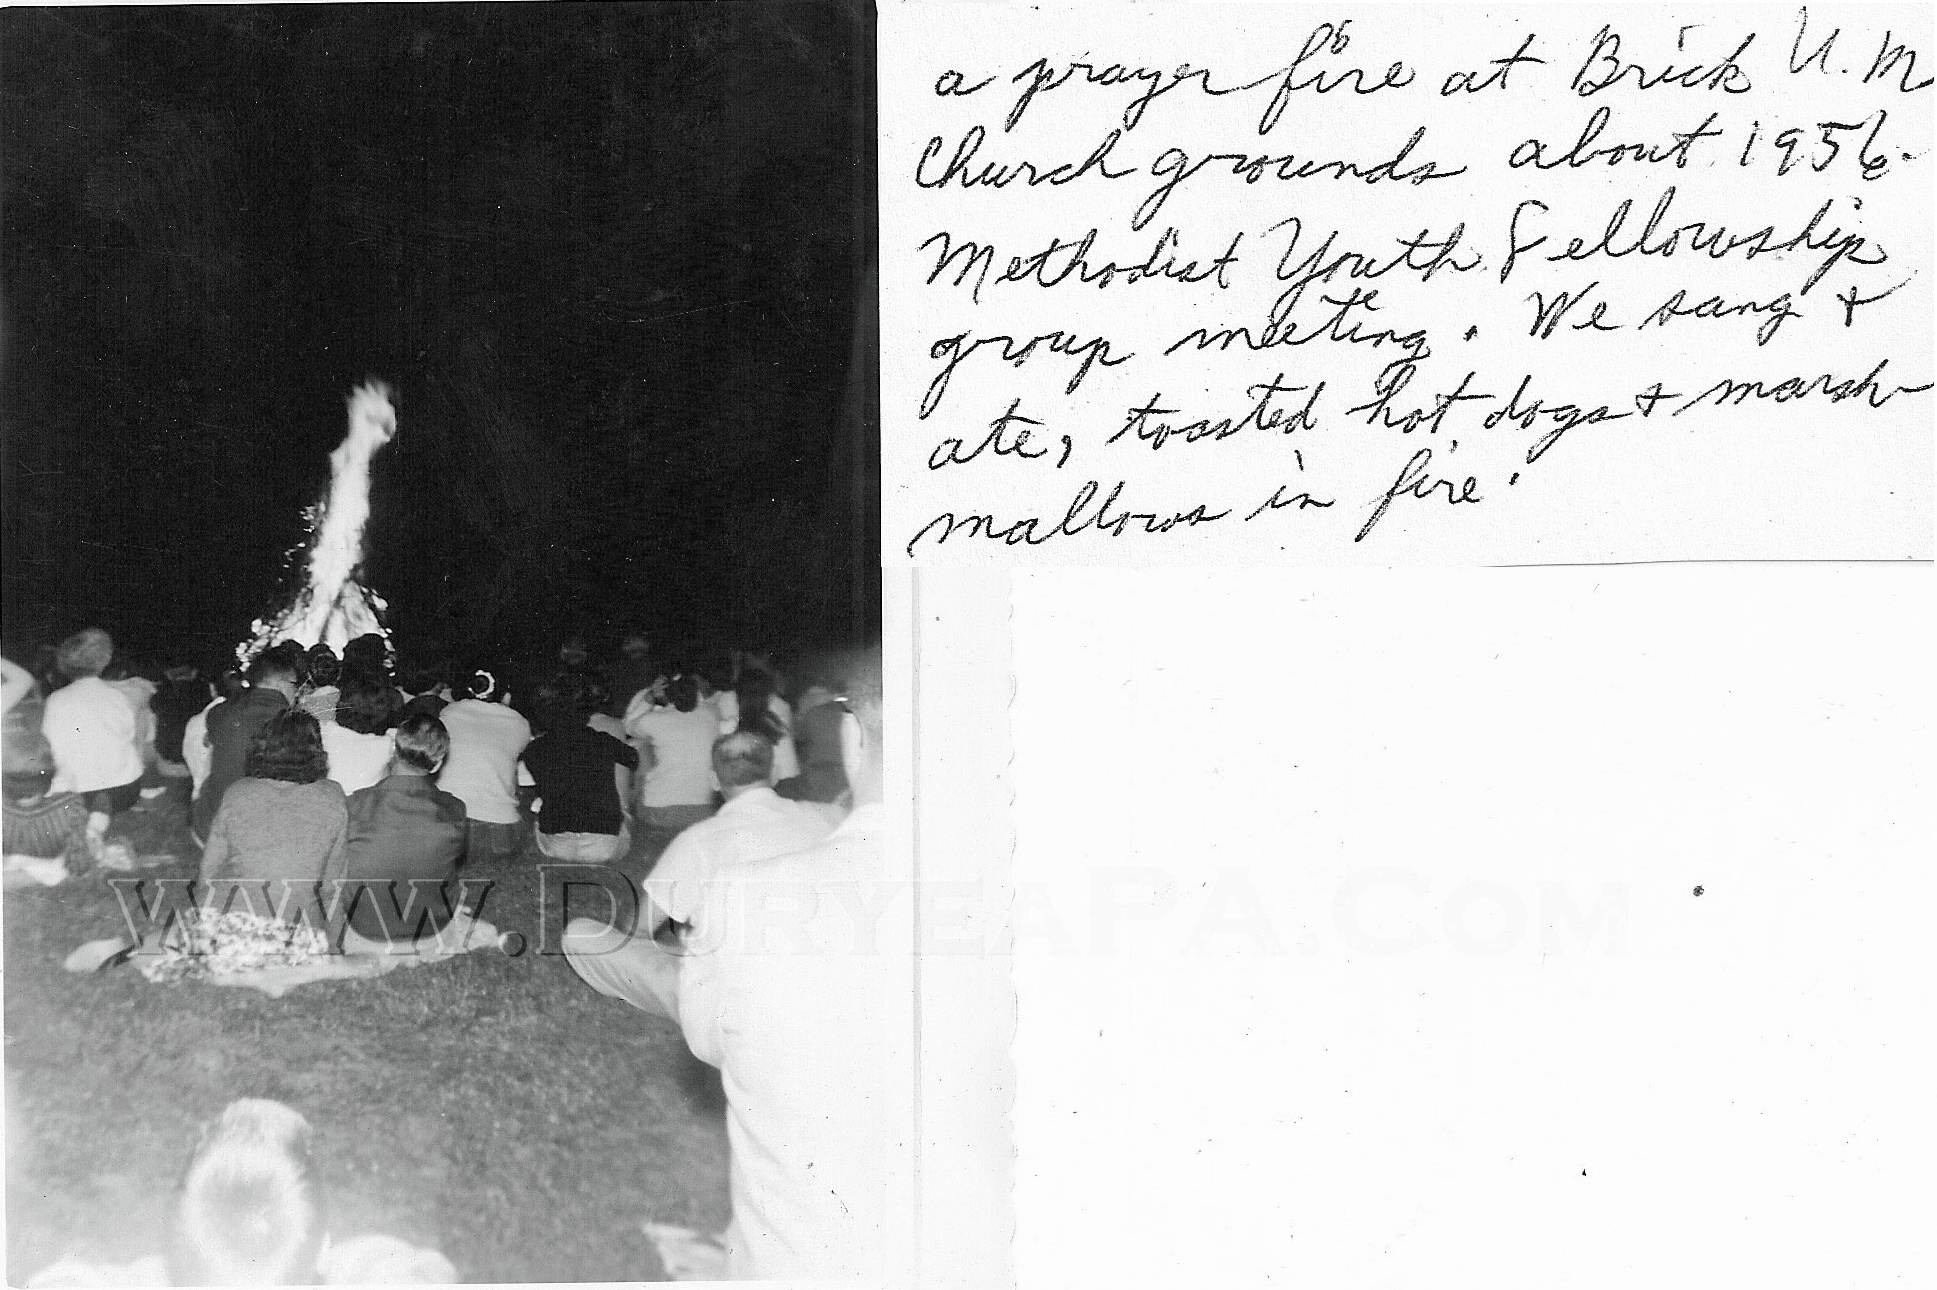 a prayer fire at Brick U.M
Church grounds about 1956.
Methodist Youth Fellowship
group meeting. We sang +
ate, toasted hot dogs + marsh-
mallows in fire.
www.DuryeaPA.Com